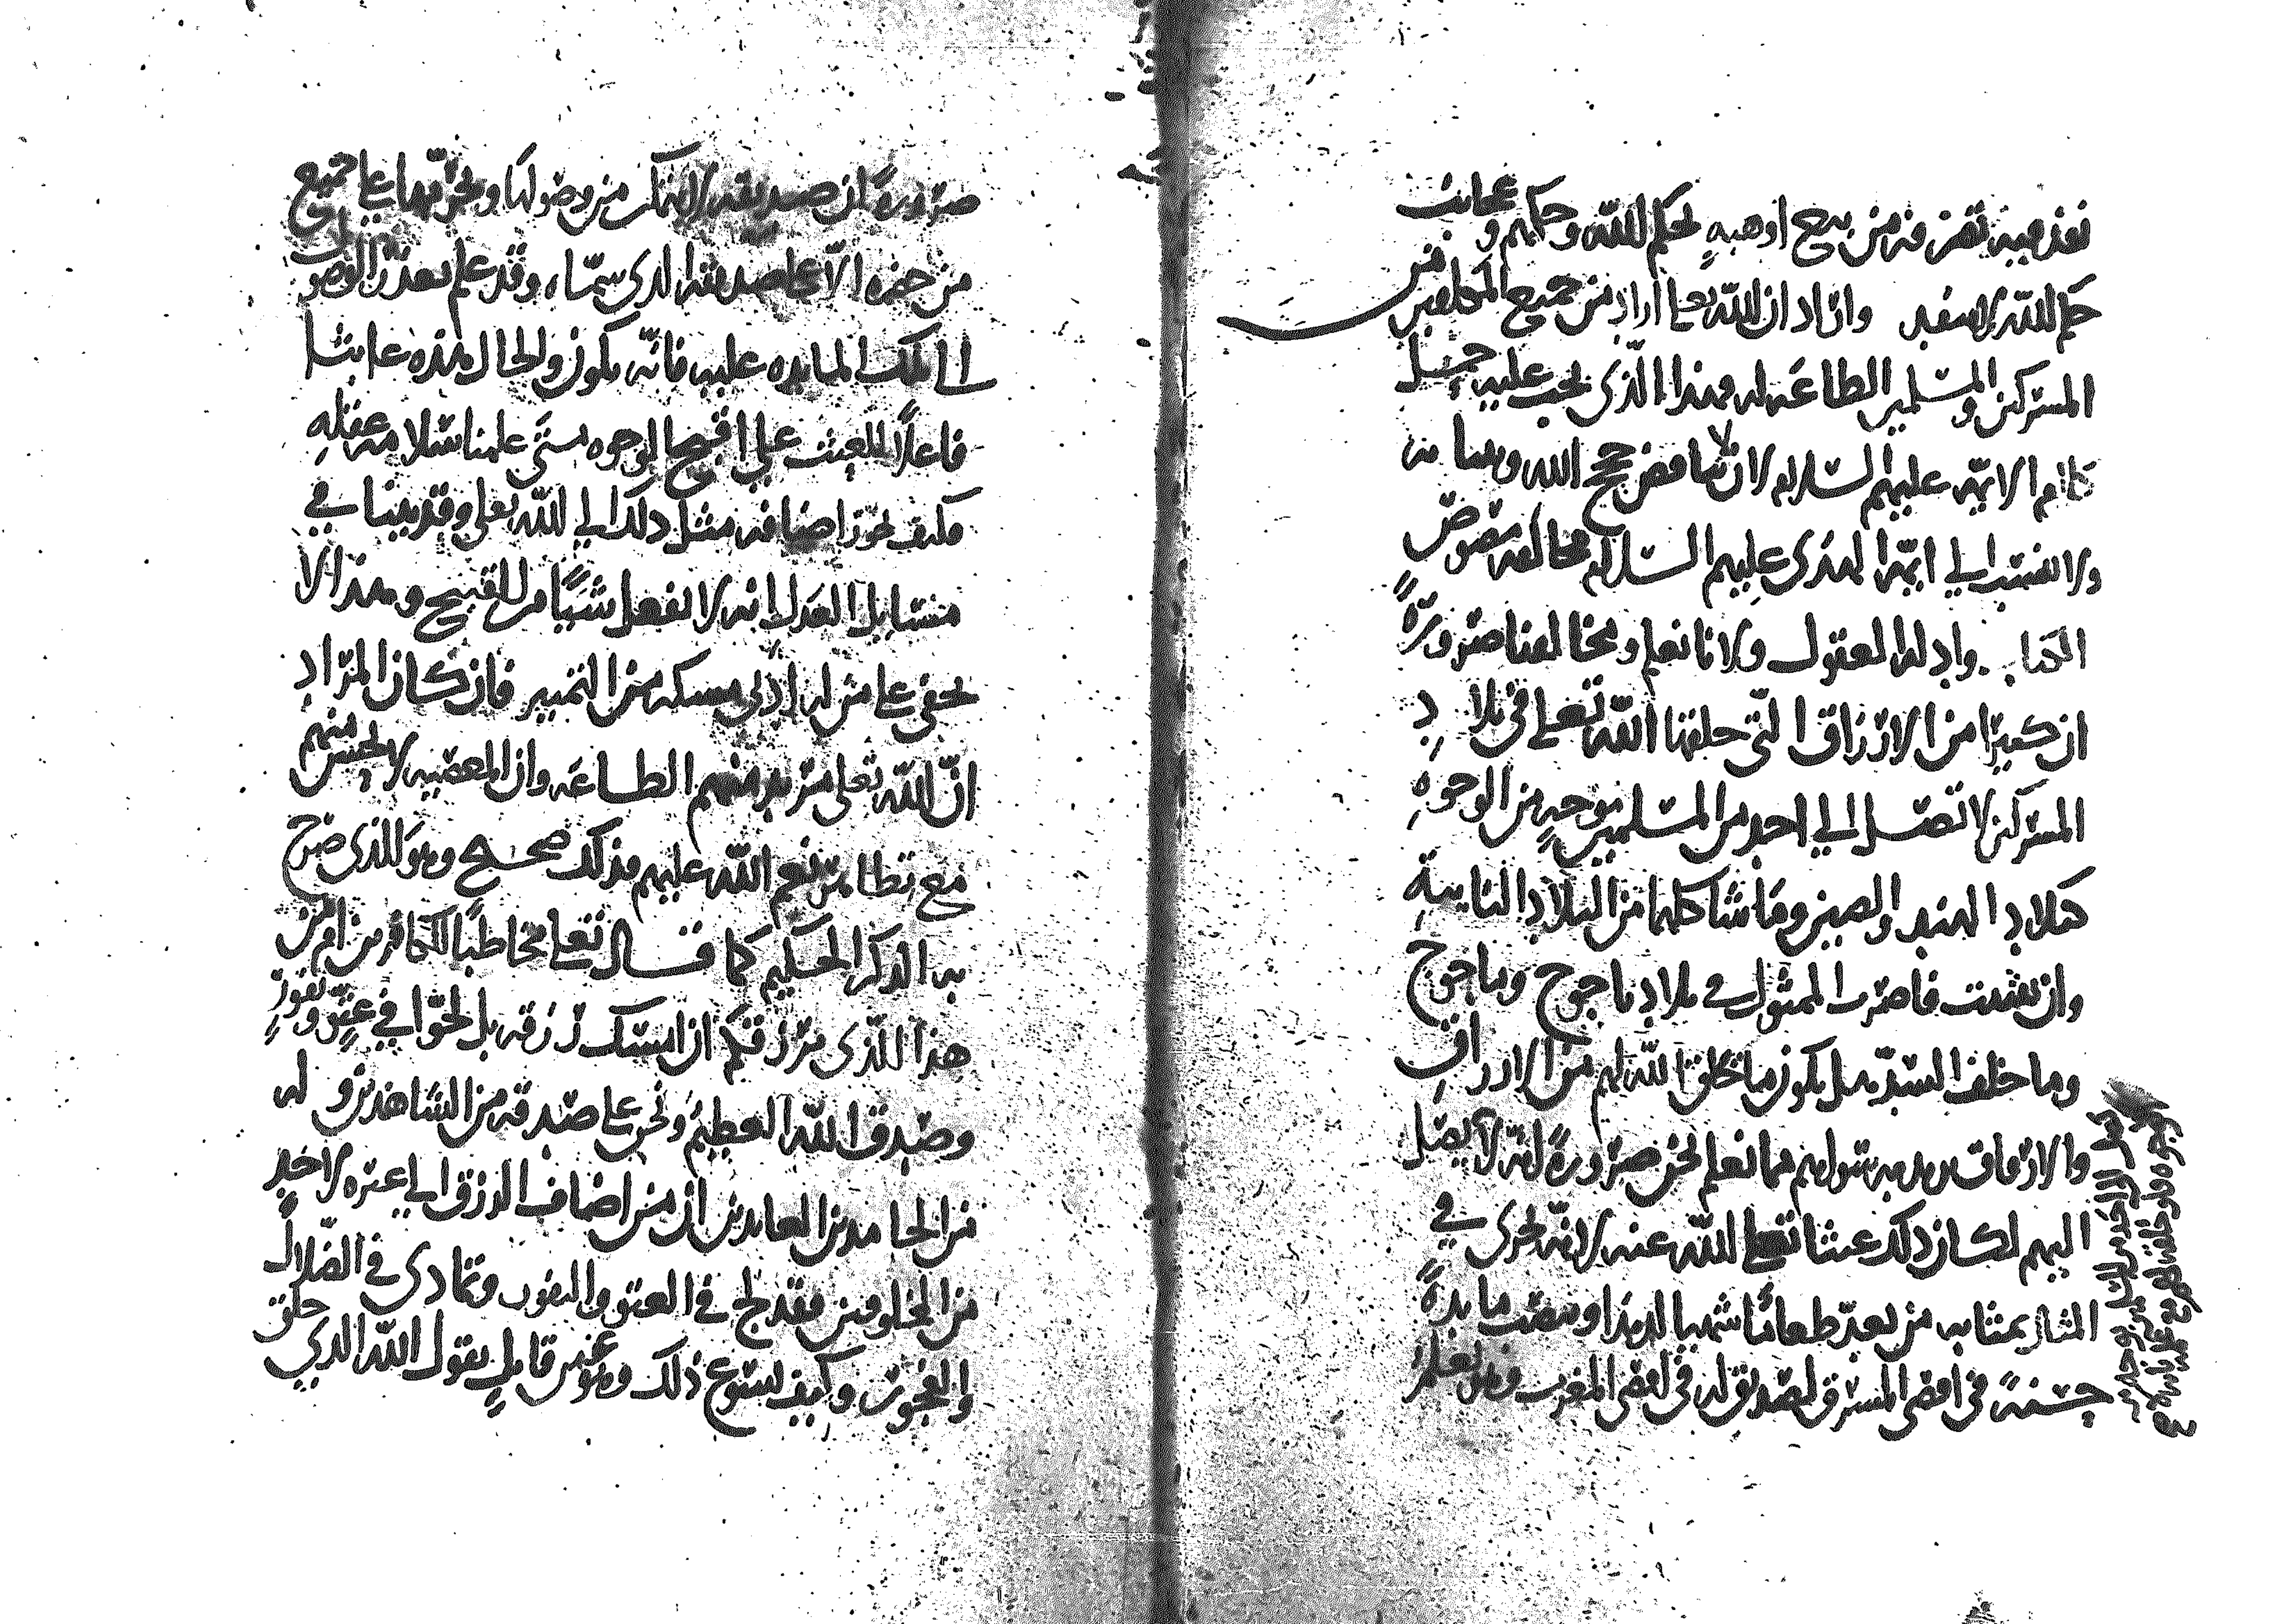 نفذ فيه تصرفه من بيع او هبه بحكم الله وحكمهم و
حكم الله لا ينفد وانا د ان الله تعالى اراد من جميع المكلفين من
المشركين والمسلمين الطاعه له وهذا الذي يجب عليه حمل
كلام الايمه عليهم السلام لان لا يتناقض حجج الله وبيناته
ولا ينسب الى ايمه الهدى عليهم السلام مخالفه نصوص
الكتاب وادله العقول ولانا نعلم ومخالفنا ضرورةً
ان كثيرا من الارزاق التي خلقها الله تعالى في بلاد
المشركين لا تصل الى احد من المسلمين بوجهٍ من الوجوه
كبلاد الهند والصين وما شاكلها من البلاد النايية
وان بعدت فاضرب المثول في بلاد ياجوج وماجوج
وما خلف السد هل يكون ما خلق الله لهم من الارزاق
والارفاق نعلم نحن ضرورةً انه لا يصل
اليهم لكان ذلك عبثا تعالى الله عنه لانه يجرى في
المثال بمثابه من يعد طعاما شهيا لذيذا او ينصب مايدةً
حسنةً في اقصى المشرق لصديق له في اقصى المغرب وهو يعلم
ضرورةً ان صديقه لا يتمكن من وصولها ويحرمها على جميع
من حضره الا على صديقه الذي سماه وقد علم تعذر الوصول
الى تلك المايده عليه فانه يكون والحال هذه عابثا
فاعلاً للعبث على اقبح الوجوه متى علمنا سلامه عقله
فكيف تجوز اضافه مثل ذلك الى الله تعالى وقد بينا في
مسايل العدل انه لا يفعل شيًا من القبيح وهذا لا
يخفى على من له ادنى مسكه من التمييز فان كان المراد
انّ الله تعالى يريد منهم الطاعه وان المعصيه لا تحسن منهم
مع تظاهر نعم الله عليهم فذلك صحيح وهو الذي صرح
به الذكر الحكيم كما قال تعالى مخاطبا للكافرين ام من
هذا الذي يرزقكم ان امسك رزقه بل لجوا في عتو ونفور
وصدق الله العظيم ونحن على صدقه من الشاهدين وله
من الحامدين العابدين ان من اضاف الرزق الى غيره لاحد
من المخلوقين فقد لج في العتو والنفور وتمادى في الضلال
والفجور وكيف يسوغ ذلك وهو عز من قايلٍ يقول الله الذي خلق